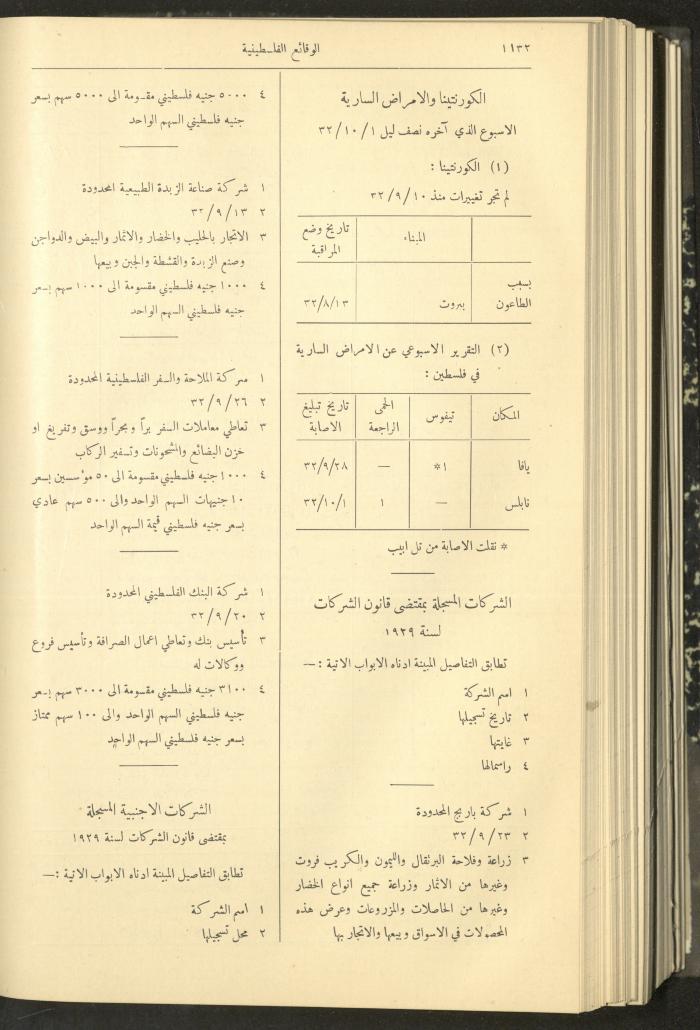 ١١٣٢
الوقائع الفلسطينية
الكورنتينا والامراض السارية
الاسبوع الذي آخره نصف ليل ١/١٠/٣٢
(١) الكورنتينا :
لم تجر تغييرات منذ ١٠/٩/٣٢
الميناء
تاريخ وضع المراقبة
بسبب
الطاعون بيروت ١٣/٨/٣٢
(٢) التقرير الاسبوعي عن الامراض السارية
في فلسطين :
المكان تيفوس الحمى الراجعة تاريخ تبليغ الاصابة
يافا ١* — ٢٨/٩/٣٢
نابلس — ١ ١/١٠/٣٢
* نقلت الاصابة من تل ابيب
الشركات المسجلة بمقتضى قانون الشركات
لسنة ١٩٢٩
تطابق التفاصيل المبينة ادناه الابواب الاتية :—
١ اسم الشركة
٢ تاريخ تسجيلها
٣ غايتها
٤ راسمالها
١ شركة باريج المحدودة
٢ ٢٣/٩/٣٢
٣ زراعة وفلاحة البرتقال والليمون والكريب فروت
وغيرها من الاثمار وزراعة جميع انواع الخضار
وغيرها من الحاصلات والمزروعات وعرض هذه
المحصولات في الاسواق وبيعها والاتجار بها
٤ ٥٠٠٠ جنيه فلسطيني مقسومة الى ٥٠٠٠ سهم بسعر
جنيه فلسطيني السهم الواحد
١ شركة صناعة الزبدة الطبيعية المحدودة
٢ ١٣/٩/٣٢
٣ الاتجار بالحليب والخضار والاثمار والبيض والدواجن
وصنع الزبدة والقشطة والجبن وبيعها
٤ ١٠٠٠ جنيه فلسطيني مقسومة الى ١٠٠٠ سهم بسعر
جنيه فلسطيني السهم الواحد
١ شركة الملاحة والسفر الفلسطينية المحدودة
٢ ٢٦/٩/٣٢
٣ تعاطي معاملات السفر براً وبحراً ووسق وتفريغ او
خزن البضائع والشحونات وتسفير الركاب
٤ ١٠٠٠ جنيه فلسطيني مقسومة الى ٥٠ مؤسسين بسعر
١٠ جنيهات السهم الواحد والى ٥٠٠ سهم عادي
بسعر جنيه فلسطيني قيمة السهم الواحد
١ شركة البنك الفلسطيني المحدودة
٢ ٢٠/٩/٣٢
٣ تأسيس بنك وتعاطي اعمال الصرافة وتأسيس فروع
ووكالات له
٤ ٣١٠٠ جنيه فلسطيني مقسومة الى ٣٠٠٠ سهم بسعر
جنيه فلسطيني السهم الواحد والى ١٠٠ سهم ممتاز
بسعر جنيه فلسطيني السهم الواحد
الشركات الاجنبية المسجلة
بمقتضى قانون الشركات لسنة ١٩٢٩
تطابق التفاصيل المبينة ادناه الابواب الاتية :—
١ اسم الشركة
٢ محل تسجيلها